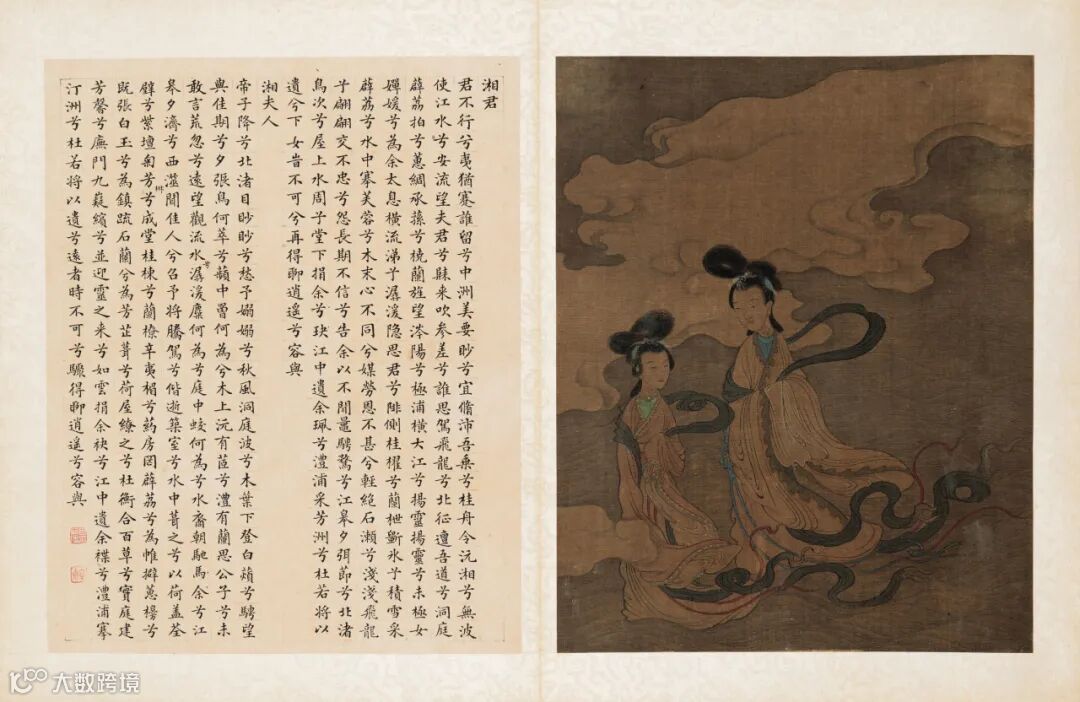 湘君
君不行兮夷猶蹇誰留兮中洲美要眇兮宜脩沛吾乘兮桂舟令沅湘兮無波
使江水兮安流望夫君兮歸来吹參差兮誰思駕飛龍兮北征邅吾道兮洞庭
薜荔拍兮蕙綢承蓀兮橈蘭旌望涔陽兮極浦橫大江兮揚靈揚靈兮未極女
嬋媛兮為余太息橫流涕子潺湲隐思君兮陫側桂櫂兮蘭枻斷氷子積雪采
薜荔兮水中搴芙蓉兮木末心不同兮媒勞恩不甚兮輕絶石瀨兮淺淺飛龍
子翩翩交不忠兮怨長期不信兮告余以不閒鼂騁騖兮江皋夕弭節兮北渚
鳥次兮屋上水周子堂下捐余兮玦江中遺余珮兮澧浦采芳洲兮杜若將以
遺兮下女昔不可兮再得聊逍遥兮容與
湘夫人
帝子降兮北渚目眇眇兮愁予嫋嫋兮秋風洞庭波兮木葉下登白薠兮騁望
與佳期兮夕張鳥何萃兮蘋中罾何為兮木上沅有茝兮澧有蘭思公子兮未
敢言荒忽兮遠望觀流水兮潺湲麋何為兮庭中蛟何為兮水裔朝馳馬余兮江
皋夕濟兮西澨聞佳人兮召予將騰駕兮偕逝築室兮水中葺之兮以荷蓋荃
兮紫壇匊芳兮成堂桂棟兮蘭橑辛夷楣兮葯房罔薜荔兮為帷擗蕙櫋兮
既張白玉兮為鎮疏石蘭兮為芳芷葺兮荷屋繚之兮杜衡合百草兮實庭建
芳馨兮廡門九嶷繽兮並迎靈之来兮如雲捐余袂兮江中遺余褋兮澧浦搴
汀洲兮杜若將以遺兮遠者時不可兮驟得聊逍遥兮容與
大数跨境